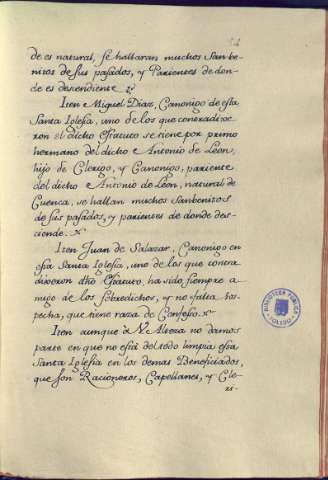 de es natural, se hallaran muchos Sanbe-
nitos de sus pasados, y Parientes de don-
de es descendiente
Iten Miguel Diaz, Canonigo de esta
Santa Iglesia, uno de los que contradixe-
ron el dicho estatuto se tiene por primo
hermano del dicho Antonio de Leon,
hijo de Clerigo, y Canonigo, pariente
del dicho Antonio de Leon, natural de
Cuenca, se hallan muchos sanbenitos
de sus pasados, y parientes de donde des-
ciende.
Iten Juan de Salazar, Canonigo en
esta Santa Iglesia, uno de los que contra
dixeron dho Estatuto, ha sido siempre a-
migo de los sobredichos, y no falta sos-
pecha, que tiene raza de Confeso.
Iten aunque à V. Alteza no damos
parte en que no está del todo limpia esta
Santa Iglesia en los demas Beneficiados,
que son Racioneros, Capellanes, y Cle-
ri-
BIBLIOTECA PUBLICA
TOLEDO